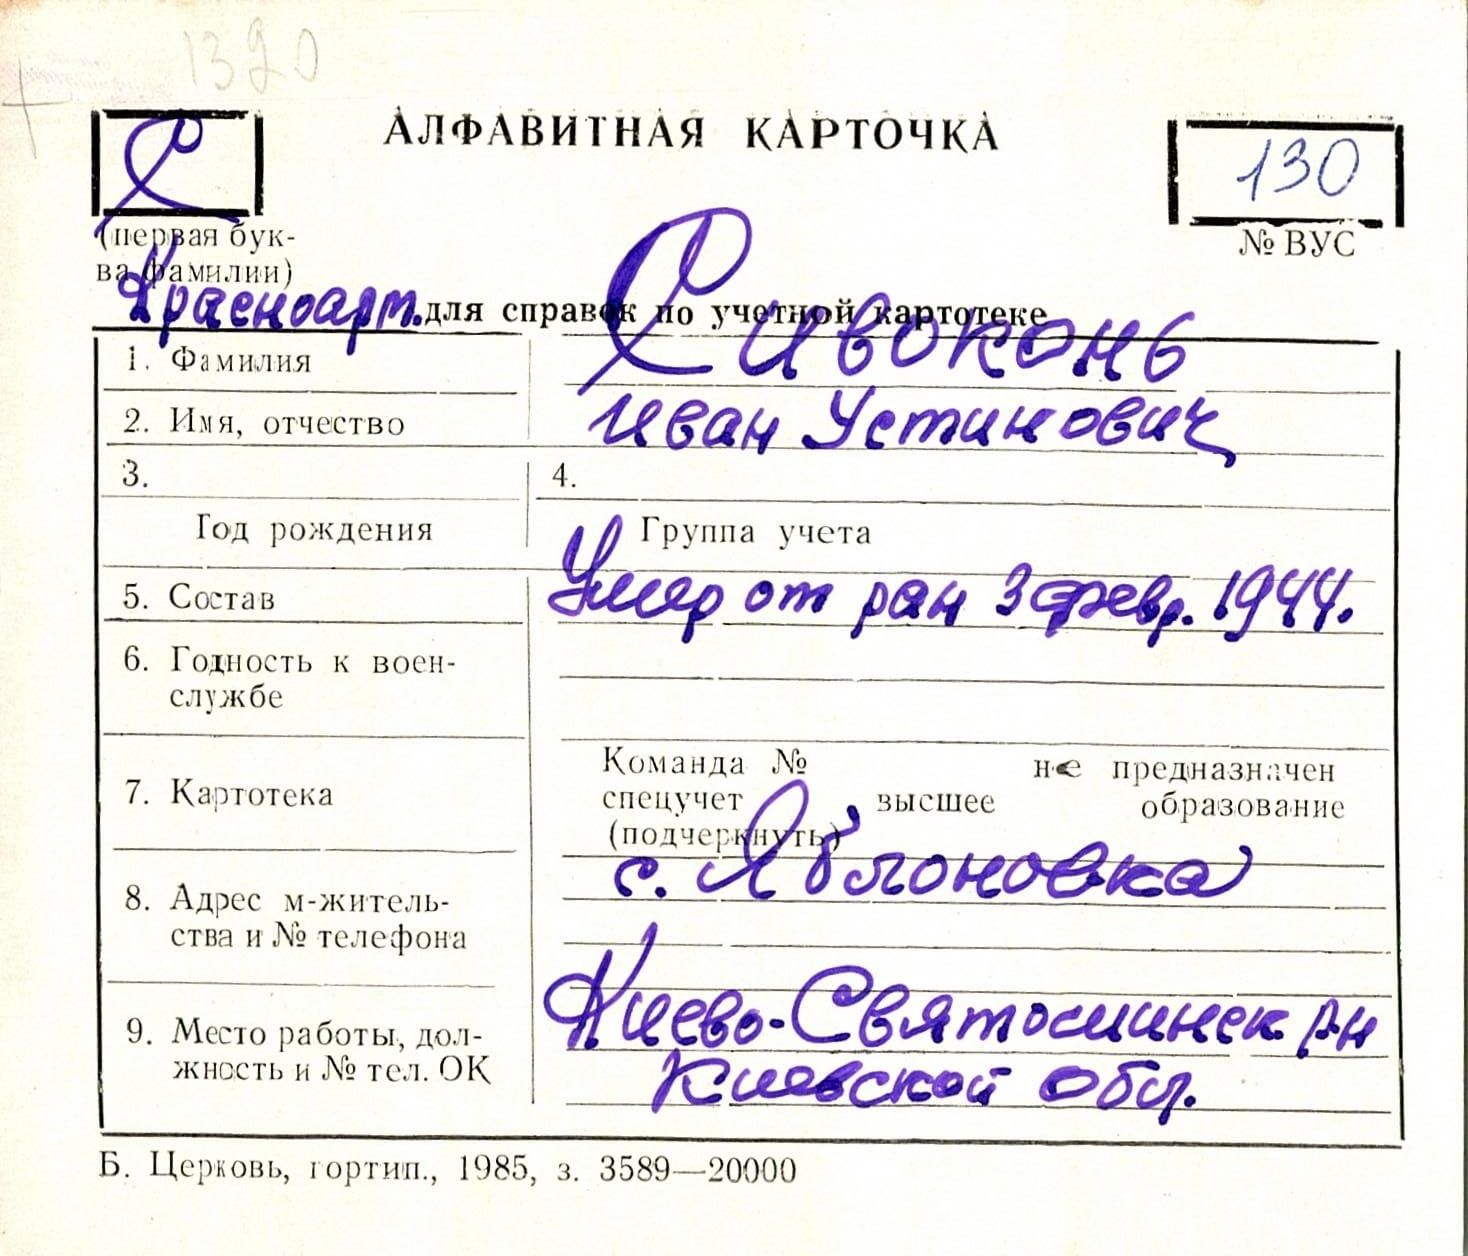 1320
С
АЛФАВИТНАЯ КАРТОЧКА
130
(первая бук-
ва фамилии)
№ ВУС
Красноарм. для справок по учетной картотеке
1. Фамилия Сивоконь
2. Имя, отчество Иван Устинович
3. 4.
Год рождения Группа учета
5. Состав Умер от ран 3 февр. 1944.
6. Годность к воен-
службе
Команда № не предназначен
7. Картотека спецучет высшее образование
(подчеркнуть)
8. Адрес м-житель- с. Яблоновка
ства и № телефона
9. Место работы, дол- Киево-Святошинск р-н
жность и № тел. ОК Киевской обл.
Б. Церковь, гортип., 1985, з. 3589—20000